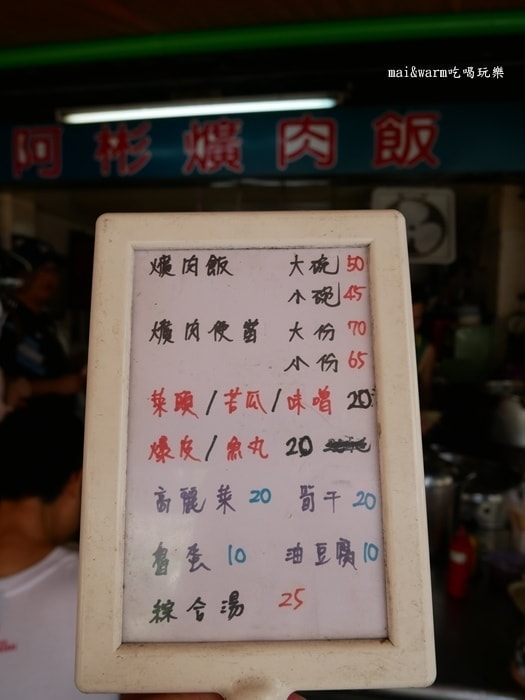 mai&warm吃喝玩樂
阿彬爌肉飯
爌肉飯 大碗 50
小碗 45
爌肉便當 大份 70
小份 65
菜頭/苦瓜/味噌 20
爆皮/魚丸 20
高麗菜 20 筍干 20
魯蛋 10 油豆腐 10
綜合湯 25